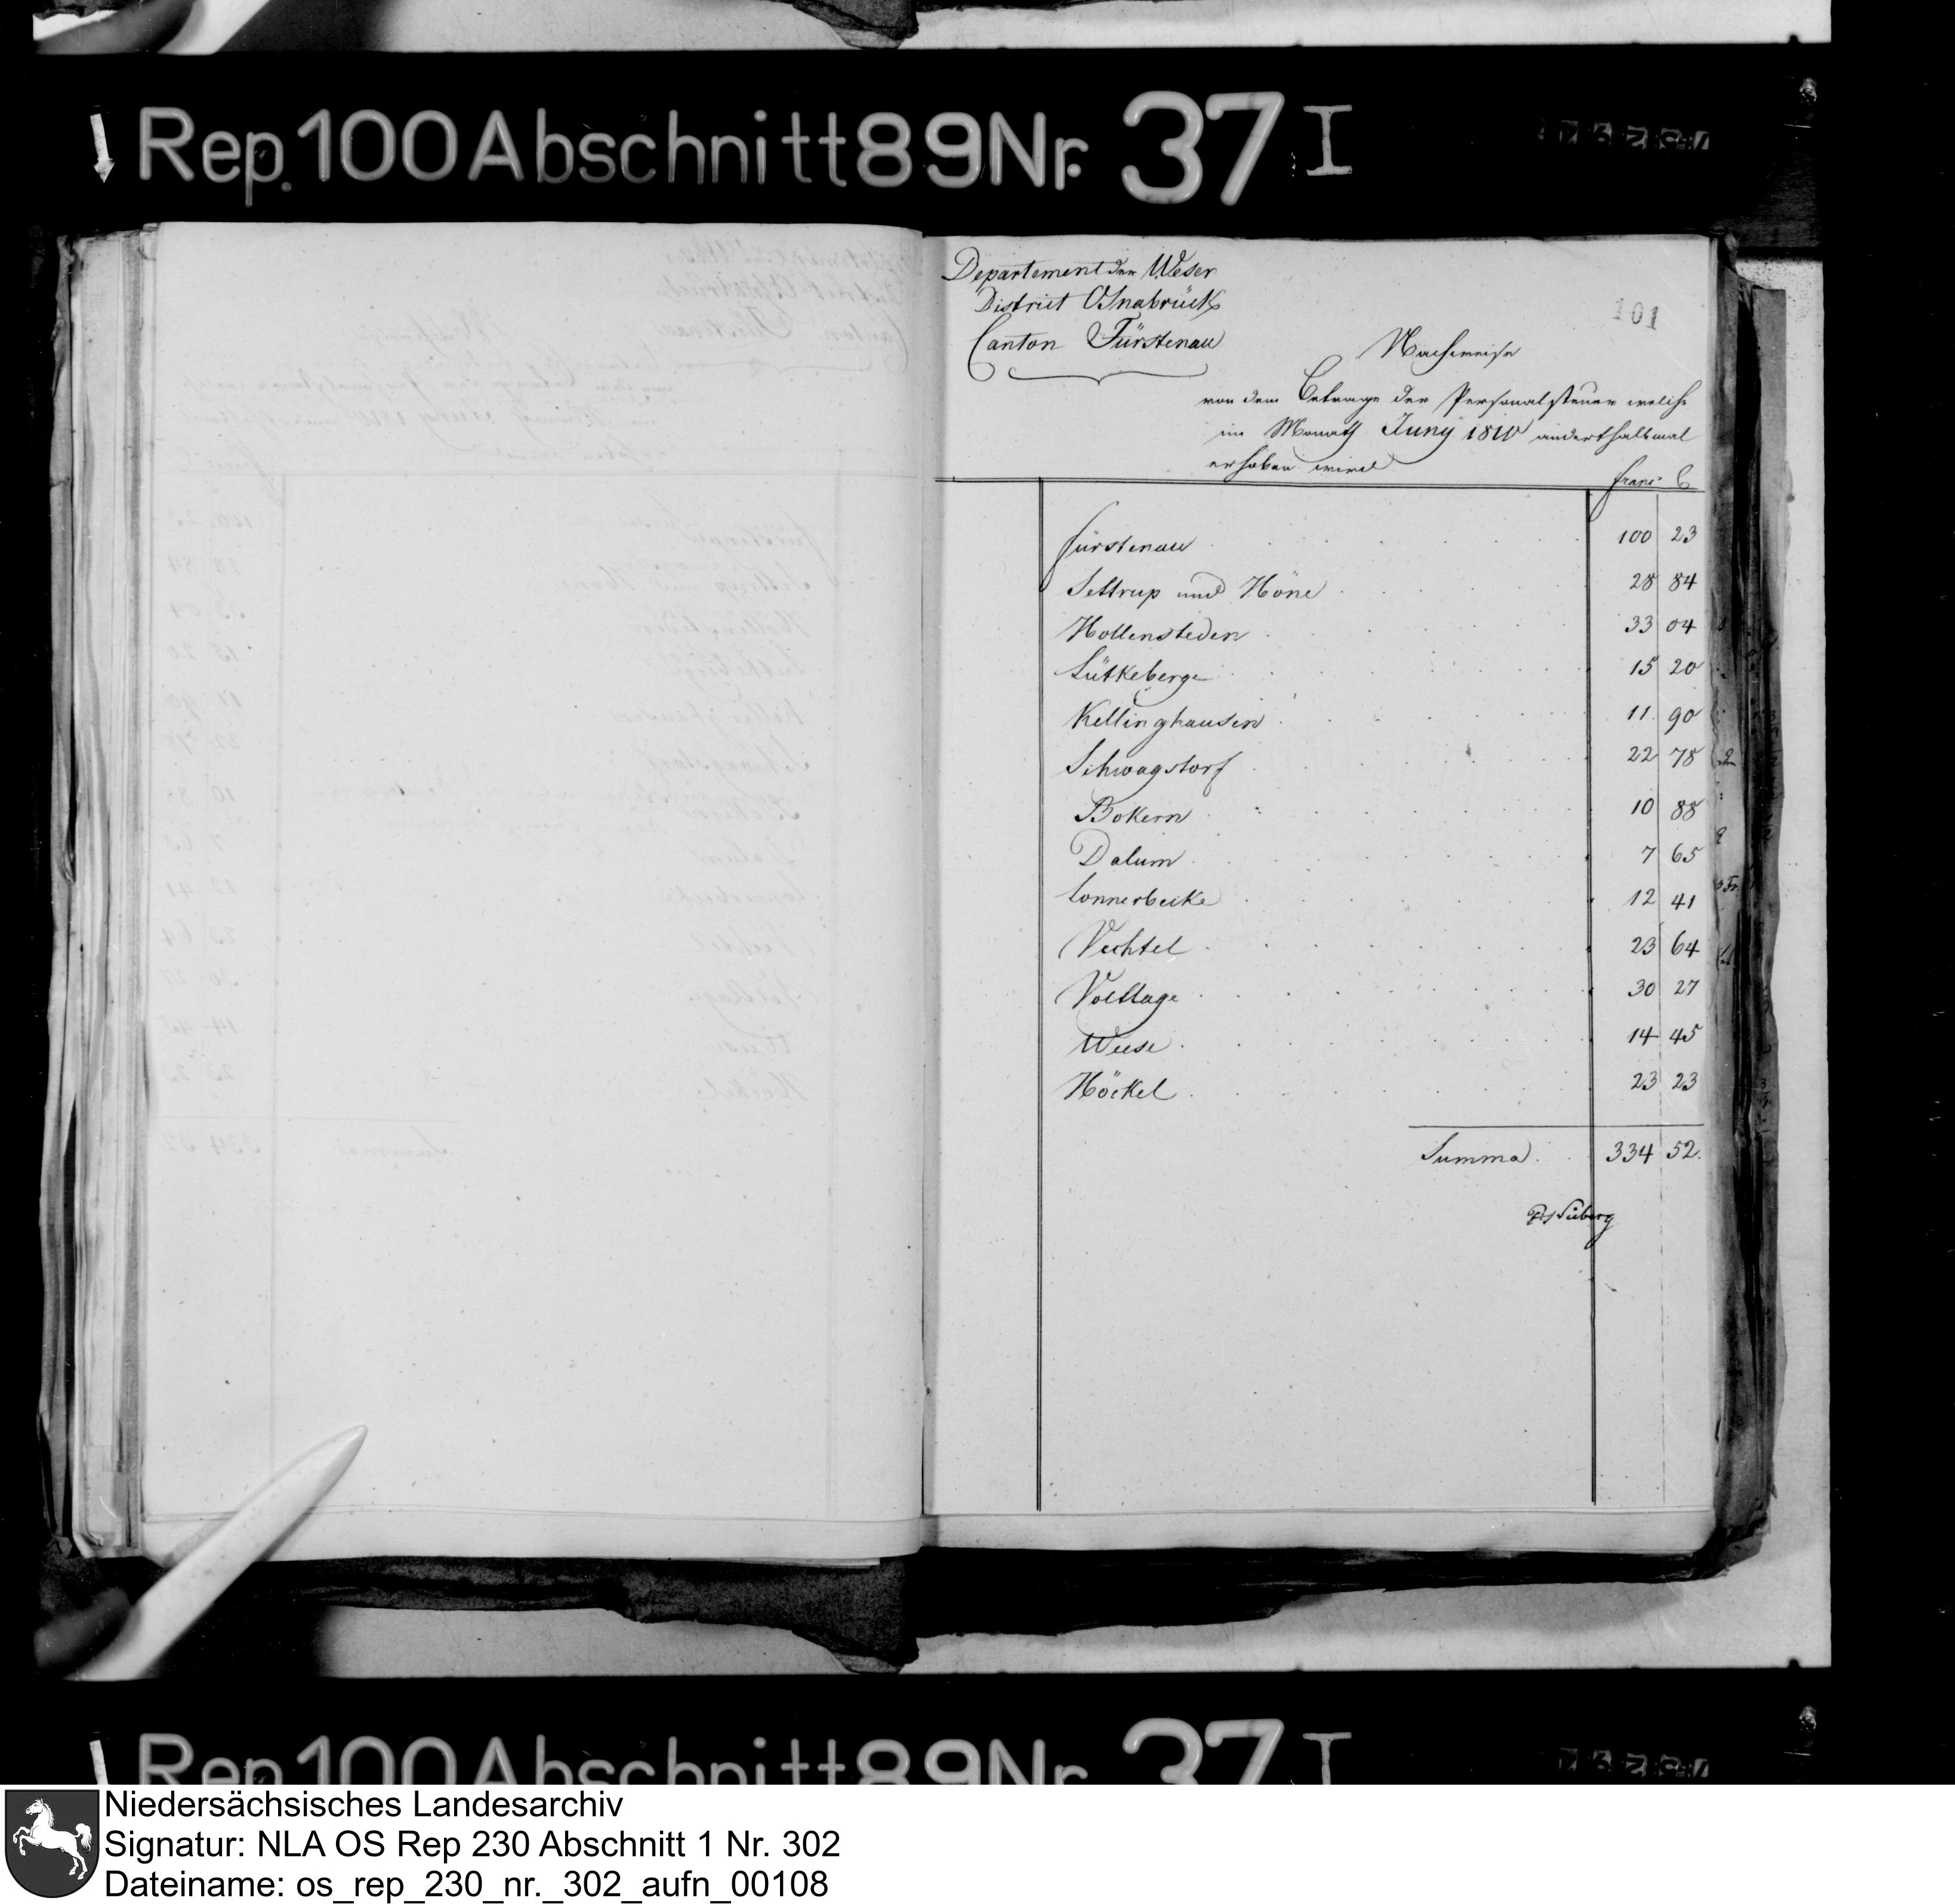 Rep.100 Abschnitt 89 Nr. 37 I
Departement der Weser
District Osnabrück
Canton Fürstenau
101
Nachweise
von dem Betrage der Personalsteuer welche
im Monath Juny 1810 anderthalbmal
erhoben wird
franc C
Fürstenau 100 23
Settrup und Höne 28 84
Hollensteden 33 04
Lütkeberge 15 20
Kellinghausen 11 90
Schwagstorf 22 78
Bokern 10 88
Dalum 7 65
Lonnerbecke 12 41
Vechtel 23 64
Voltlage 30 27
Weese 14 45
Höckel 23 23
Summa 334 52.
Rep 100 Abschnitt 89 Nr. 37 I
Niedersächsisches Landesarchiv
Signatur: NLA OS Rep 230 Abschnitt 1 Nr. 302
Dateiname: os_rep_230_nr._302_aufn_00108